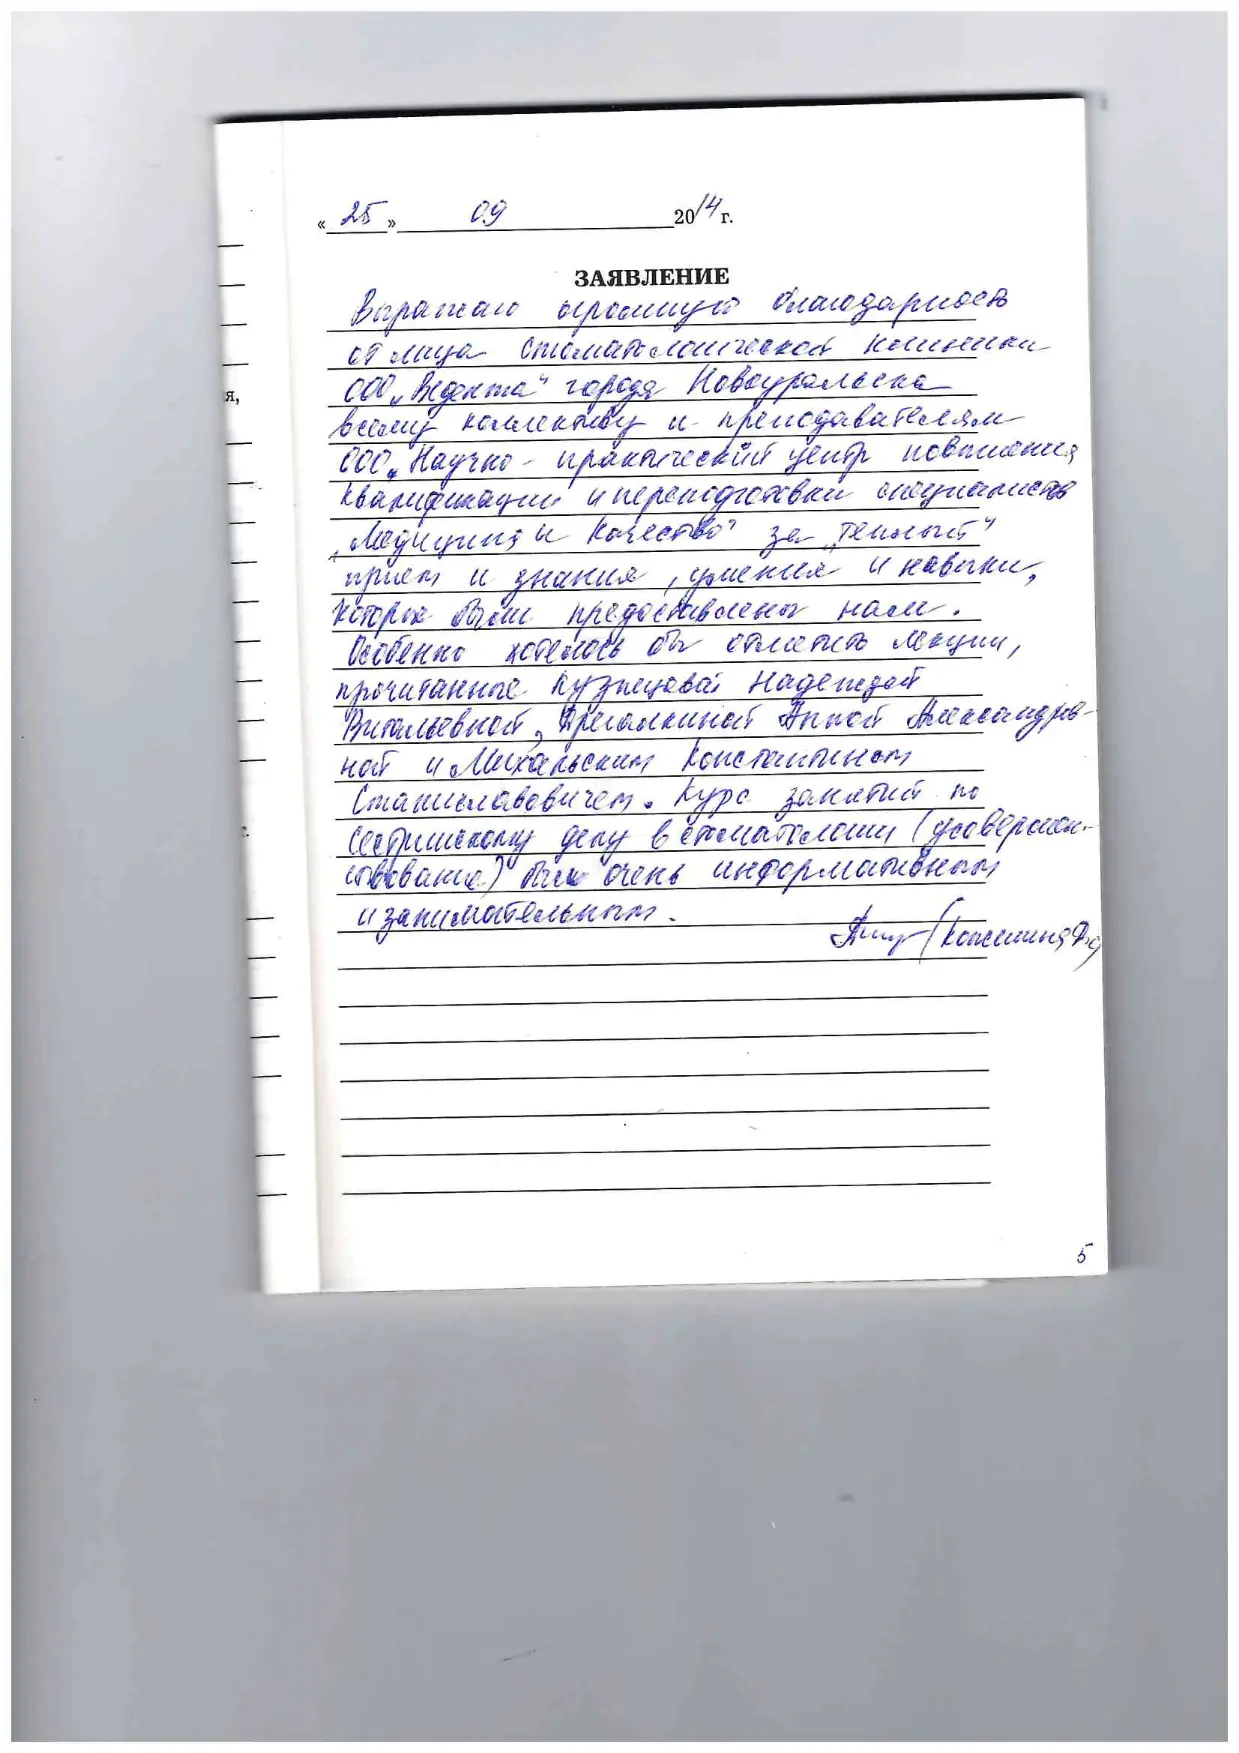 « 25 » 09 2014 г.
ЗАЯВЛЕНИЕ
Выражаю огромную благодарность
от лица стоматологической клиники
ООО „Ведента“ города Новоуральска
я,
всему коллективу и преподавателям
ООО „Научно-практический центр повышения
квалификации и переподготовки специалистов
„Медицина и Качество“ за „теплый“
прием и знания, умения и навыки,
которые были предоставлены нам.
Особенно хотелось бы отметить лекции,
прочитанные Кузнецовой Надеждой
Витальевной, Анной Александров-
ной и Михальским Константином
Станиславовичем. Курс занятий по
сестринскому делу в стоматологии (усовершен-
ствование) был очень информативным
и занимательным.
5